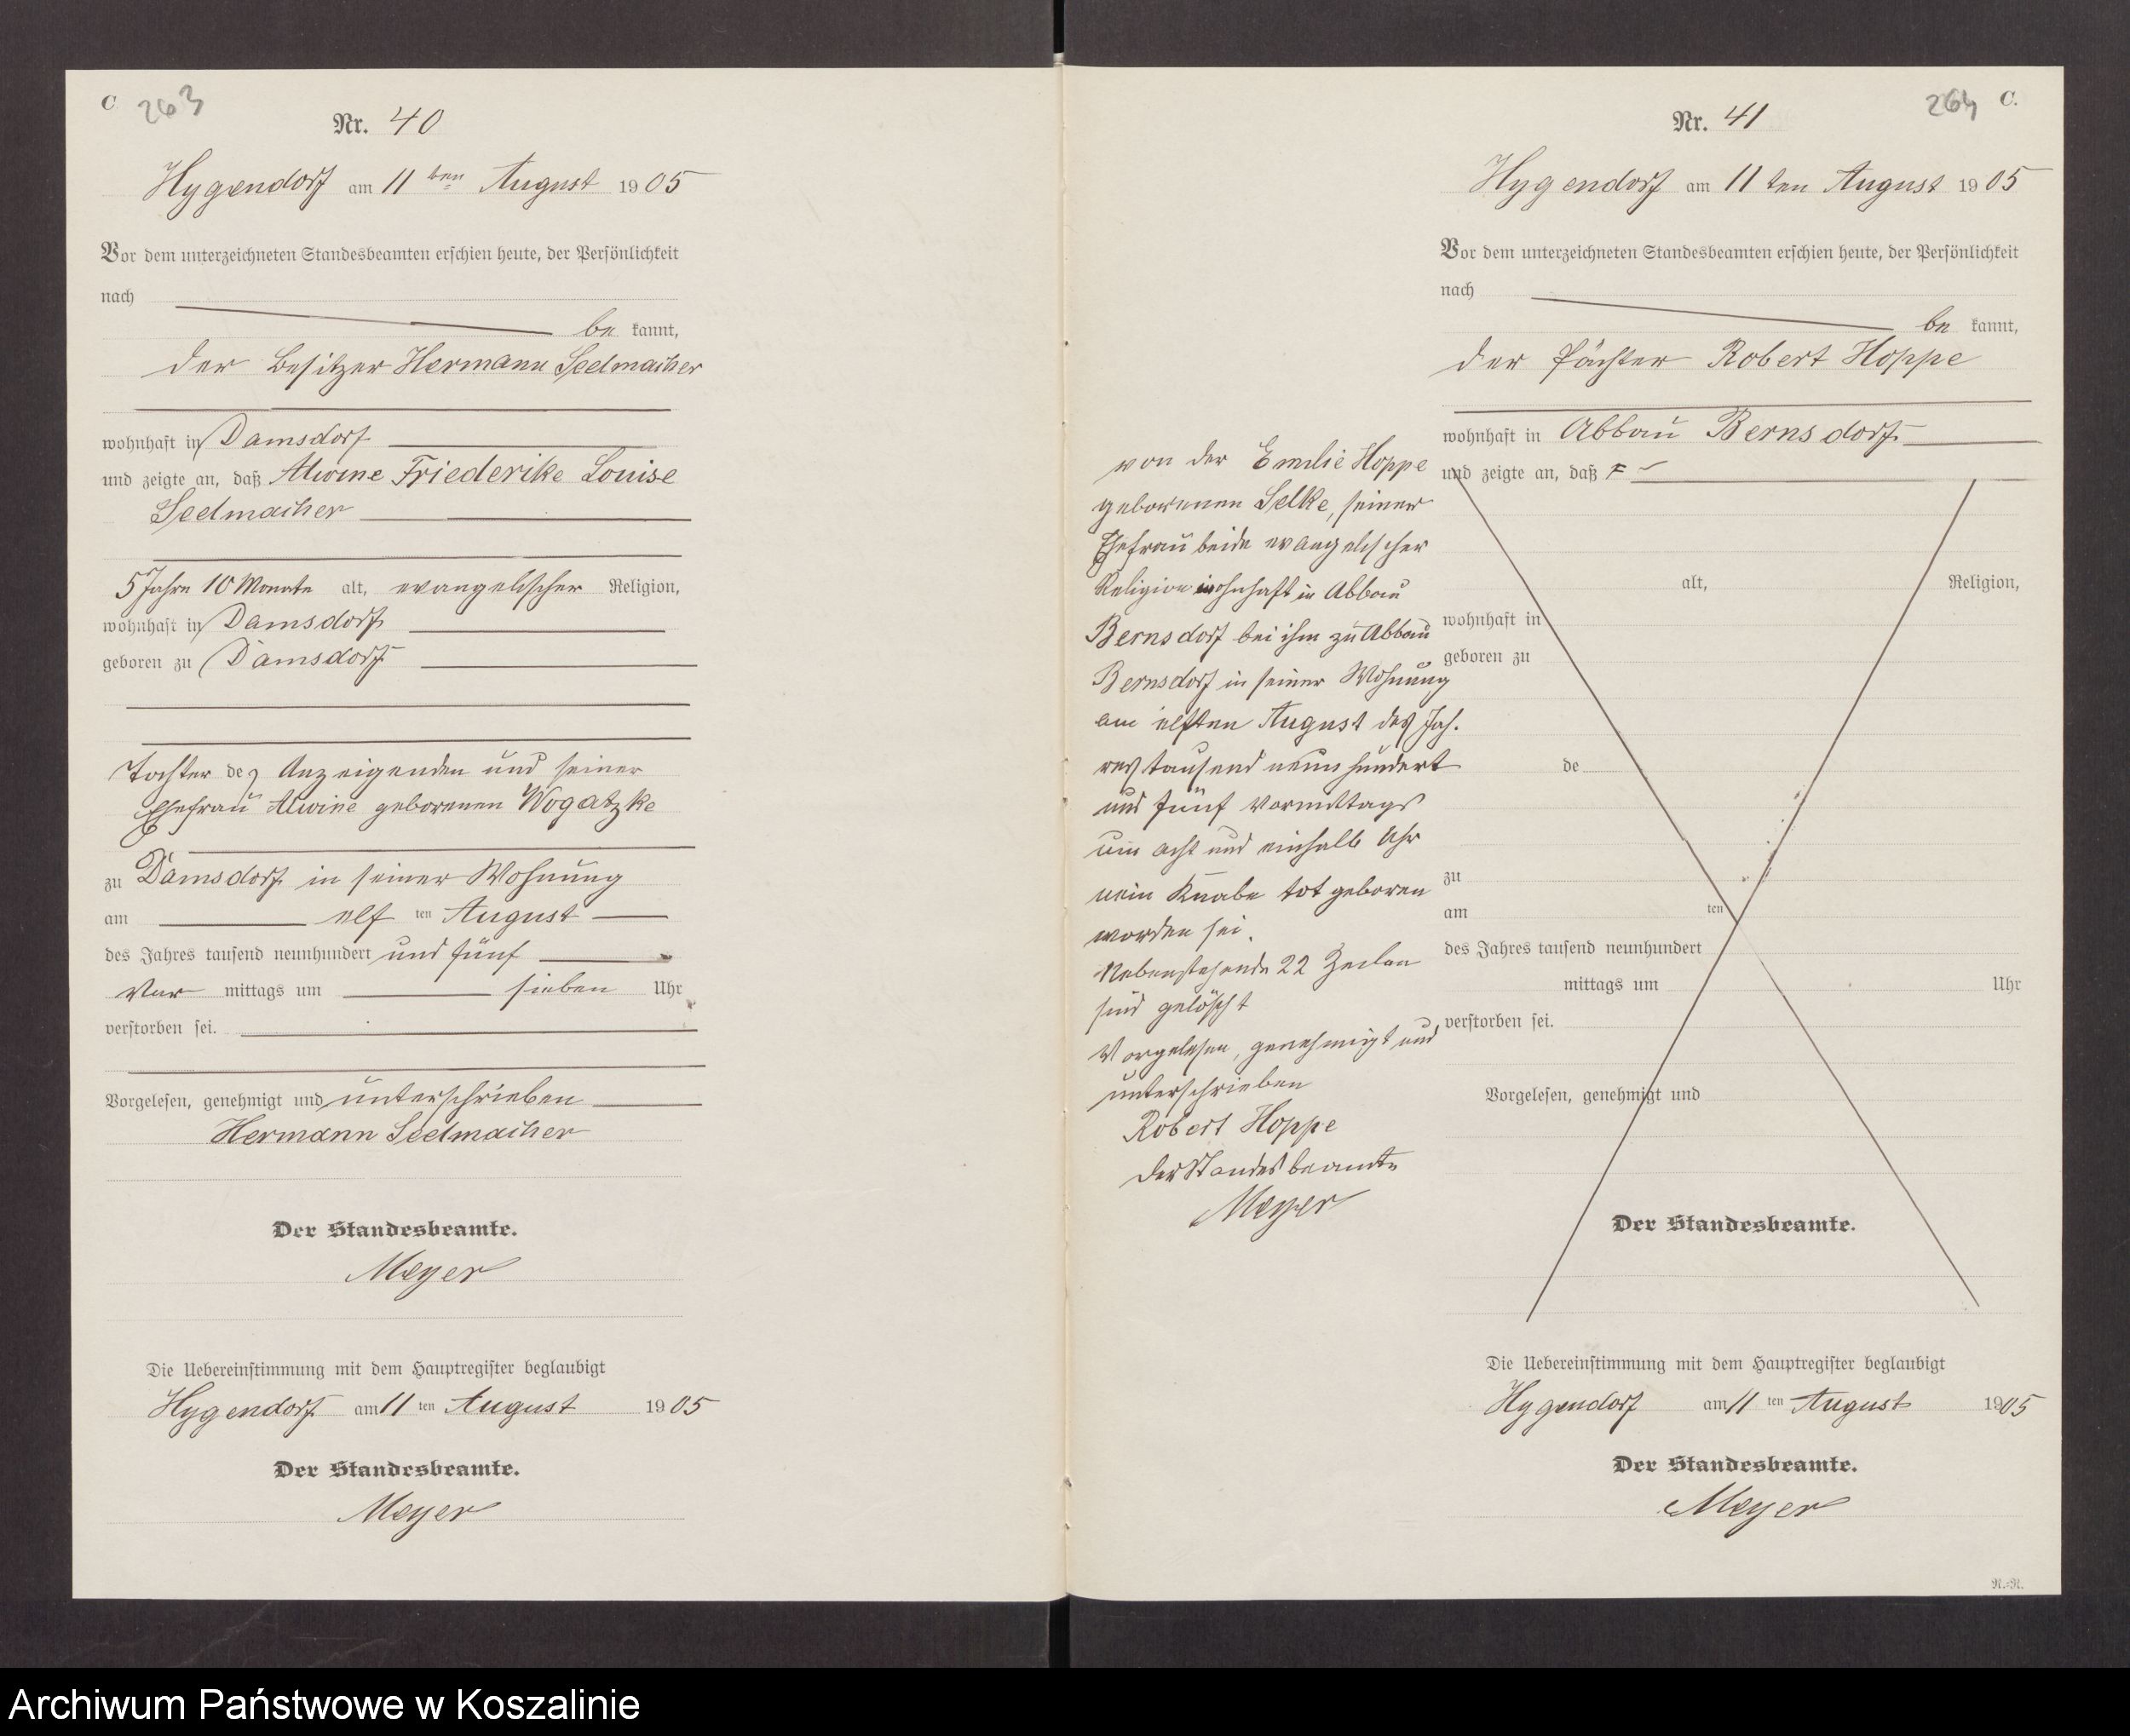 C 263
Nr. 40
Hygendorf am 11 ten August 1905
Vor dem unterzeichneten Standesbeamten erschien heute, der Persönlichkeit
nach
be kannt,
der Besitzer Hermann Seelmacher
wohnhaft in Damsdorf
und zeigte an, daß Alwine Friederike Louise
Seelmacher
5 Jahre 10 Monate alt, evangelischer Religion,
wohnhaft in Damsdorf
geboren zu Damsdorf
Tochter des Anzeigenden und seiner
Ehefrau Alwine geborenen Wogatzke
zu Damsdorf in seiner Wohnung
am elf ten August
des Jahres tausend neunhundert und fünf
Vor mittags um sieben Uhr
verstorben sei.
Vorgelesen, genehmigt und unterschrieben
Hermann Seelmacher
Der Standesbeamte.
Meyer
Die Uebereinstimmung mit dem Hauptregister beglaubigt
Hygendorf am 11 ten August 1905
Der Standesbeamte.
Meyer
264 C.
Nr. 41
Hygendorf am 11 ten August 1905
Vor dem unterzeichneten Standesbeamten erschien heute, der Persönlichkeit
nach
be kannt,
der Pächter Robert Hoppe
wohnhaft in Abbau Bernsdorf
und zeigte an, daß
von der Emilie Hoppe
geborenen Selke, seiner
Ehefrau beide evangelischer
Religion wohnhaft in Abbau
Bernsdorf bei ihm zu Abbau
Bernsdorf in seiner Wohnung
am elften August des Jah.
res tausend neun hundert
und fünf Vormittags
um acht und einhalb Uhr
ein Knabe tot geboren
worden sei.
Nebenstehende 22 Zeilen
sind gelöscht
Vorgelesen, genehmigt und
unterschrieben
Robert Hoppe
Der Standesbeamte
Meyer
alt, Religion,
wohnhaft in
geboren zu
de
zu
am ten
des Jahres tausend neunhundert
mittags um Uhr
verstorben sei.
Vorgelesen, genehmigt und
Der Standesbeamte.
Die Uebereinstimmung mit dem Hauptregister beglaubigt
Hygendorf am 11 ten August 1905
Der Standesbeamte.
Meyer
N.=N.
Archiwum Państwowe w Koszalinie